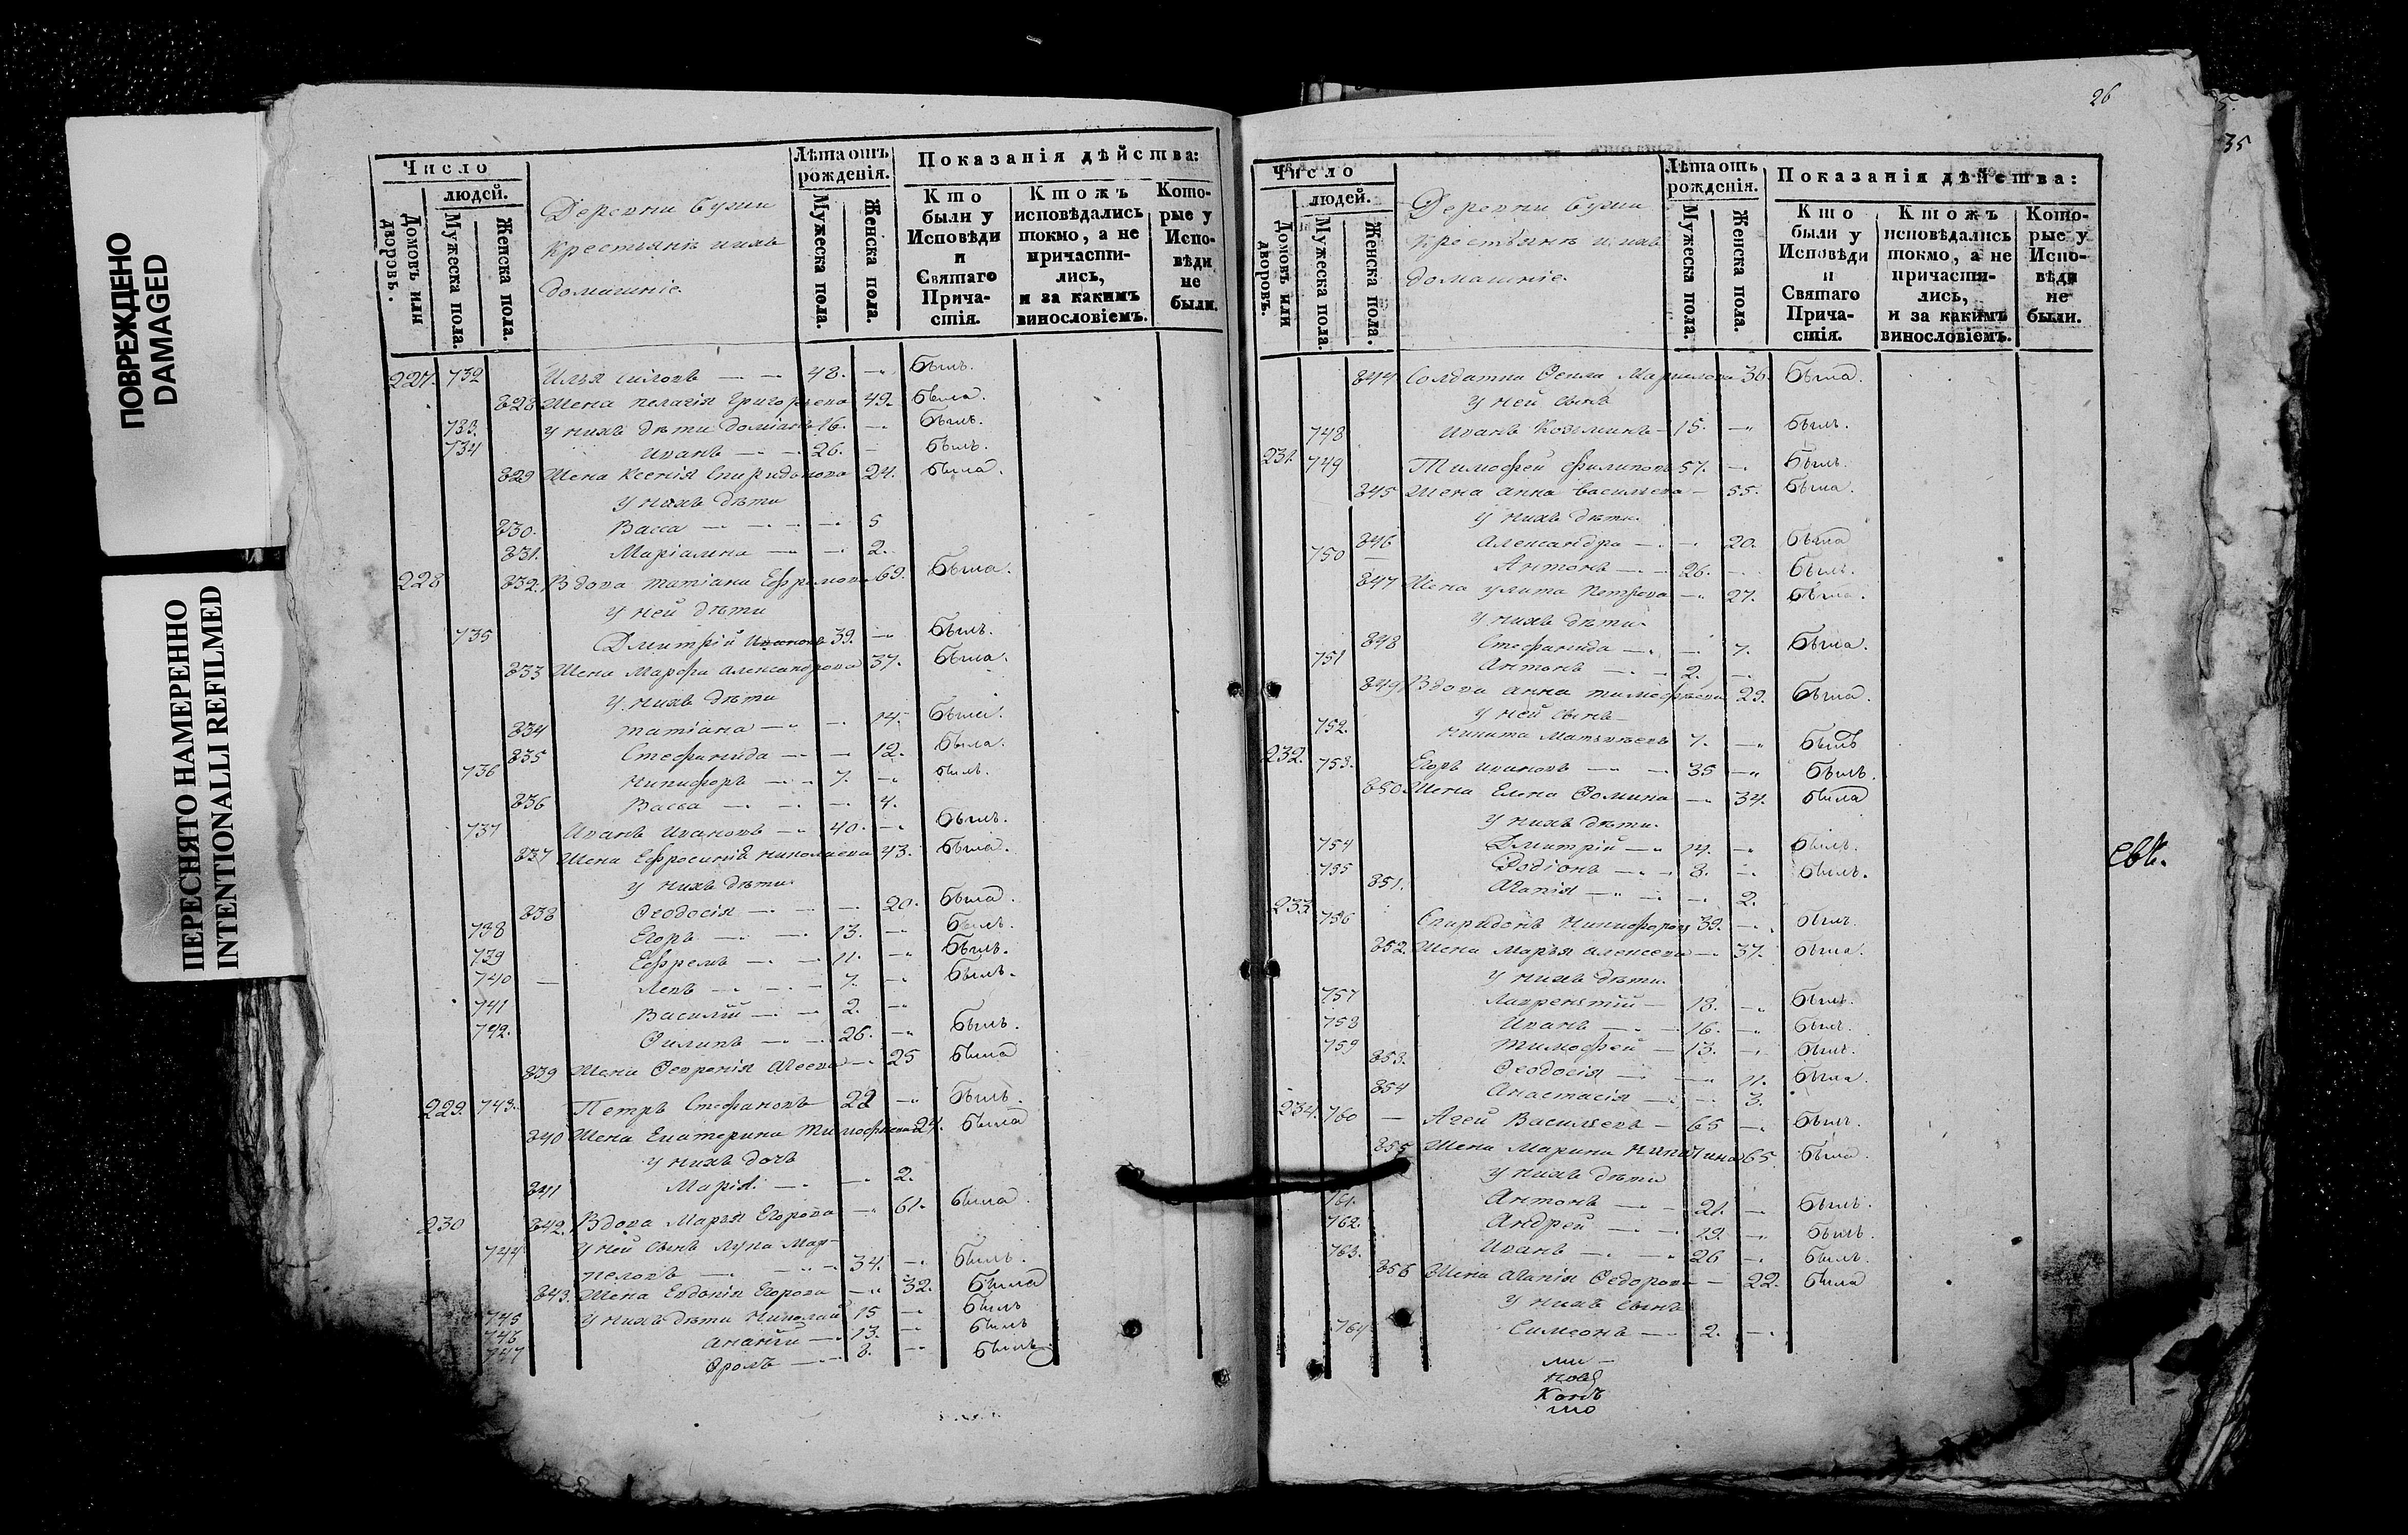 ПОВРЕЖДЕНО
DAMAGED
ПЕРЕСНЯТО НАМЕРЕННО
INTENTIONALLI REFILMED
Число
людей.
Домовъ или дворовъ.
Мужеска пола.
Женска пола.
Деревни
крестьяне и ихъ
домашніе
Лѣта отъ рожденія.
Мужеска пола.
Женска пола.
Показанія дѣйства:
Кто были у Исповѣди и Святаго Причастія.
Ктожъ исповѣдались токмо, а не причастились, и за какимъ винословіемъ.
Которые у Исповѣди не были.
227. 732 Илья Силовъ 48. Былъ.
828 Жена Пелагія Григорьева 49. Была.
733. У нихъ дѣти Доміанъ 16. Былъ.
734 Иванъ 26. Былъ.
829 Жена Ксенія Спиридонова 24. Была.
У нихъ дѣти
830. Васса 5
831. Маріамна 2.
228 832. Вдова Татіана Ефремова 69. Была.
У ней дѣти
735 Дмитрій Ивановъ 39. Былъ.
833 Жена Марфа Александрова 37. Была.
У нихъ дѣти
834 Татіана 14. Была.
835 Стефанида 12. Была.
736 Никифоръ 7. Былъ.
836 Васса 4.
737 Иванъ Ивановъ 40. Былъ.
837 Жена Ефросинія Николаева 43. Была.
У нихъ дѣти
838 Ѳеодосія 20. Была.
738 Егоръ 13. Былъ.
739 Ефремъ 11. Былъ.
740 Левъ 7. Былъ.
741 Василій 2.
742. Филипъ 26. Былъ.
839 Жена Ѳевронія Агеева 25 Была
229. 743. Петръ Стефановъ 22 Былъ.
840 Жена Екатерина Тимофѣева 24. Была
У нихъ дочь
841 Марія 2.
230 842. Вдова Марья Егорова 61. Была.
744 У ней сынъ Лука Мар-
келовъ 34. Былъ.
843. Жена Евдокія Егорова 32. Была
745 У нихъ дѣти Николай 15 Былъ
746 Ананій 13. Былъ
747 Фролъ 8. Былъ
26
35
Число
людей.
Домовъ или дворовъ.
Мужеска пола.
Женска пола.
Деревни
крестьяне и ихъ
домашніе
Лѣта отъ рожденія.
Мужеска пола.
Женска пола.
Показанія дѣйства:
Кто были у Исповѣди и Святаго Причастія.
Ктожъ исповѣдались токмо, а не причастились, и за какимъ винословіемъ.
Которые у Исповѣди не были.
844 Солдатка Ѳекла Маркелова 36. Была.
У ней сынъ
748 Иванъ Козьминъ 15. Былъ.
231. 749 Тимофей Филиповъ 57. Былъ.
845 Жена Анна Васильева 55. Была.
У нихъ дѣти
846 Александра 20. Была
750 Антонъ 26. Былъ.
847 Жена Улита Петрова 27. Была.
У нихъ дѣти
848 Стефанида 7. Была.
751 Антонъ 2.
849 Вдова Анна Тимофѣева 29. Была.
У ней сынъ
752. Никита Матвѣевъ 7. Былъ
232. 753. Егоръ Ивановъ 35 Былъ.
850 Жена Елена Фомина 34. Была
У нихъ дѣти
754 Дмитрій 14. Былъ.
755 Родіонъ 8. Былъ.
851. Агапія 2.
233 756 Спиридонъ Никифоровъ 39. Былъ.
852. Жена Марья Алексеева 37. Была.
У нихъ дѣти
757 Лаврентій 18. Былъ.
758 Иванъ 16. Былъ.
759 Тимофей 13. Былъ.
853. Ѳеодосія 11. Была.
854 Анастасія 3.
234. 760 Агей Васильевъ 65 Былъ.
855 Жена Марина Никитина 65. Была.
У нихъ дѣти
761. Антонъ 21. Былъ.
762. Андрей 29. Былъ.
763. Иванъ 26 Былъ.
856 Жена Агапія Ѳедорова 22. Была
У нихъ сынъ
764 Симеонъ 2.